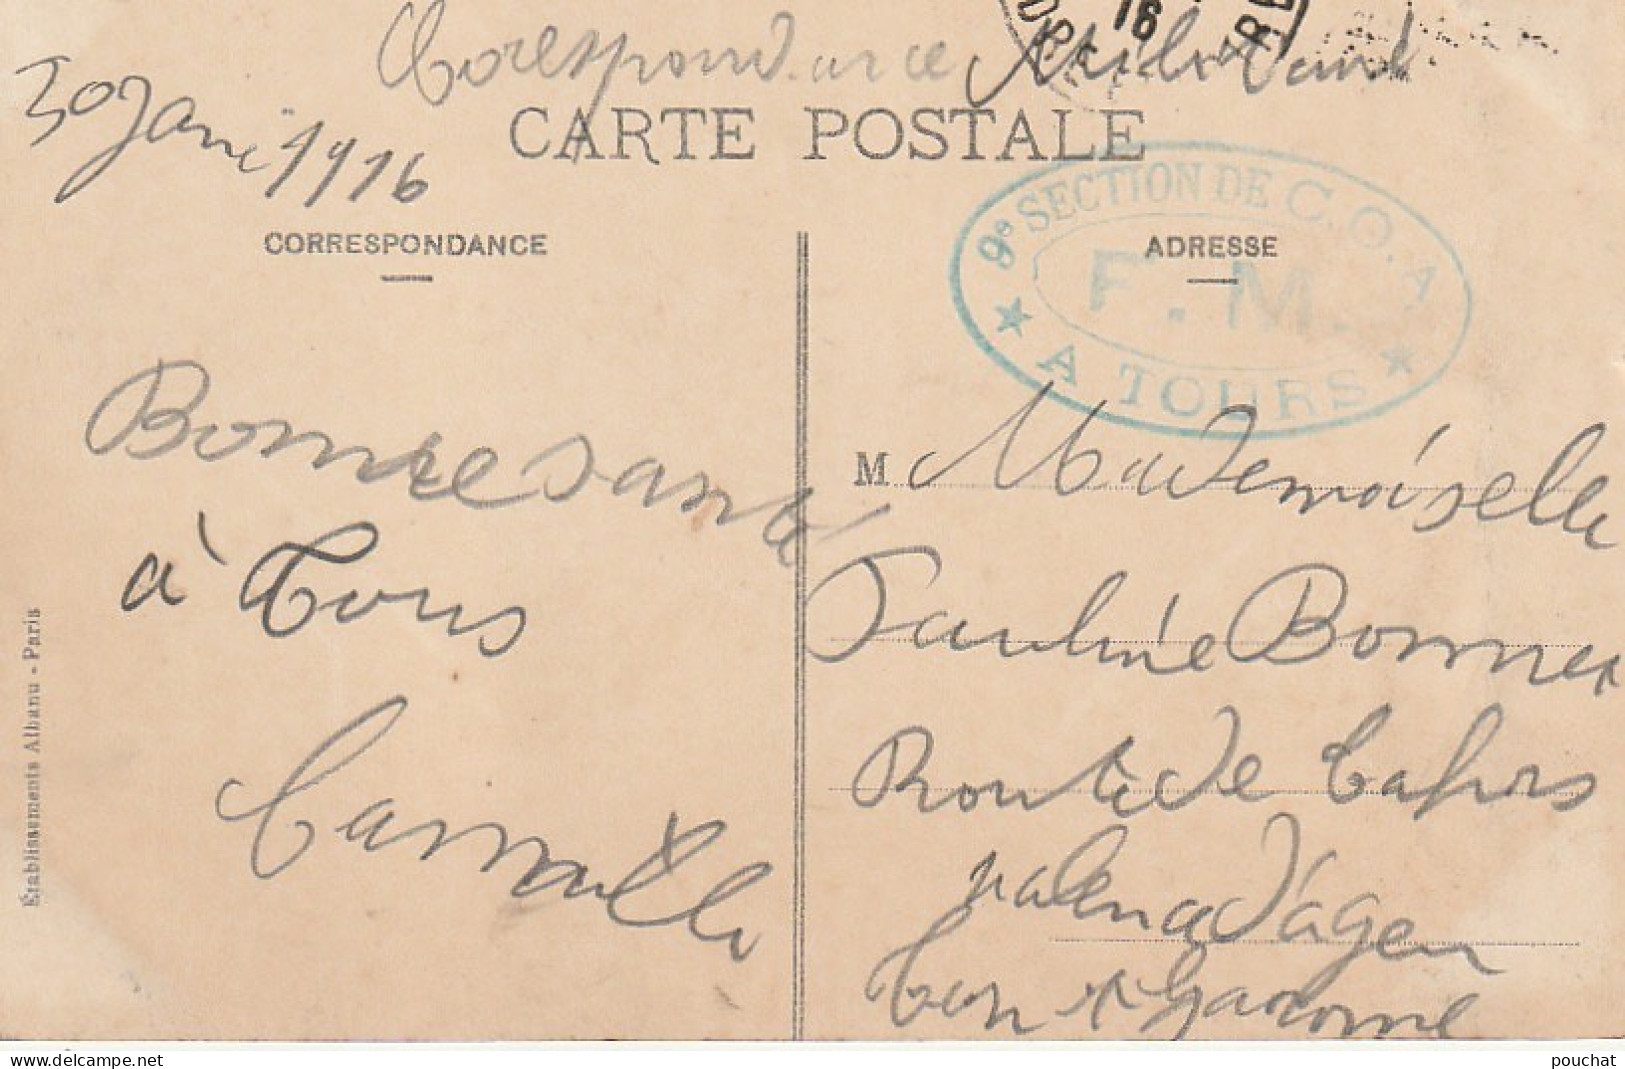 Corespondance Militaire
16
30 Janv 1916
CARTE POSTALE
CORRESPONDANCE
ADRESSE
9e SECTION DE C.O.A
F.M.
A TOURS
Bonne santé
à Tous
Camille
M Mademoiselle
Pauline Bonnet
Route de Cahors
valence d'agen
tarn et Garonne
Établissements Albanu - Paris
pouchat